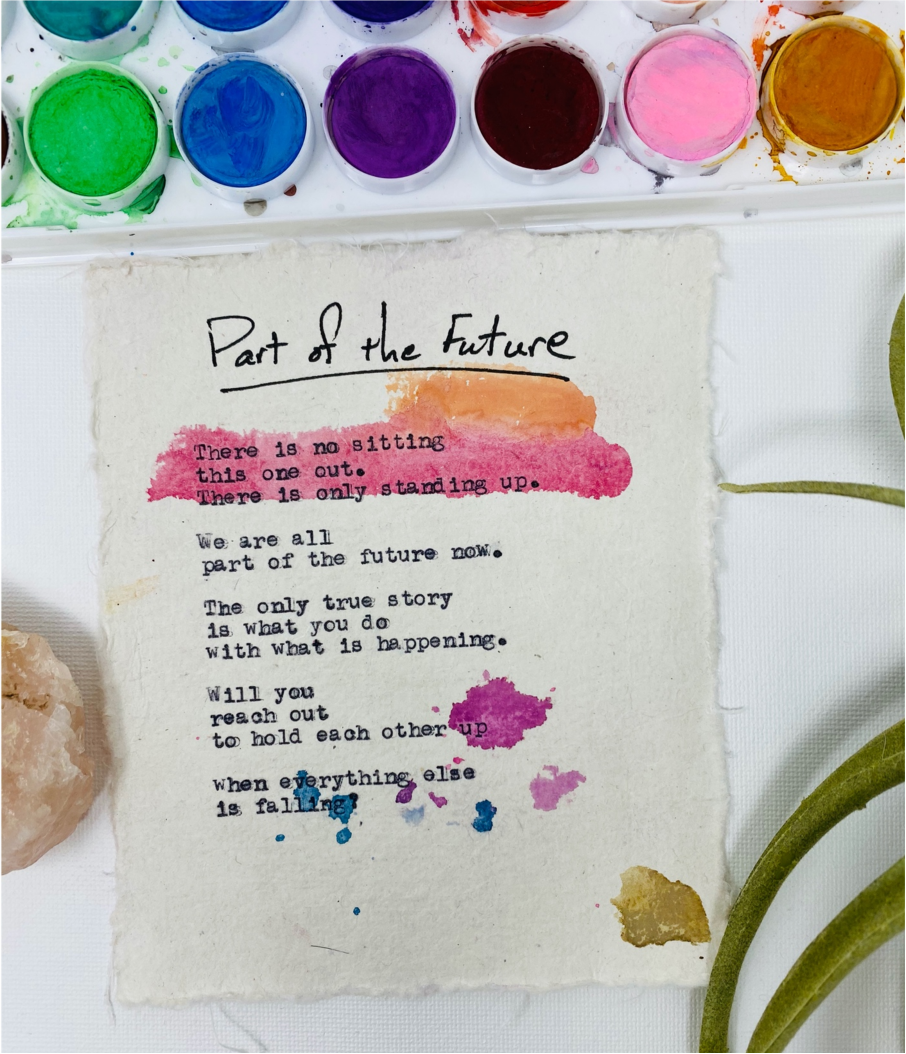 Part of the Future
There is no sitting
this one out.
There is only standing up.
We are all
part of the future now.
The only true story
is what you do
with what is happening.
Will you
reach out
to hold each other up
when everything else
is falling?